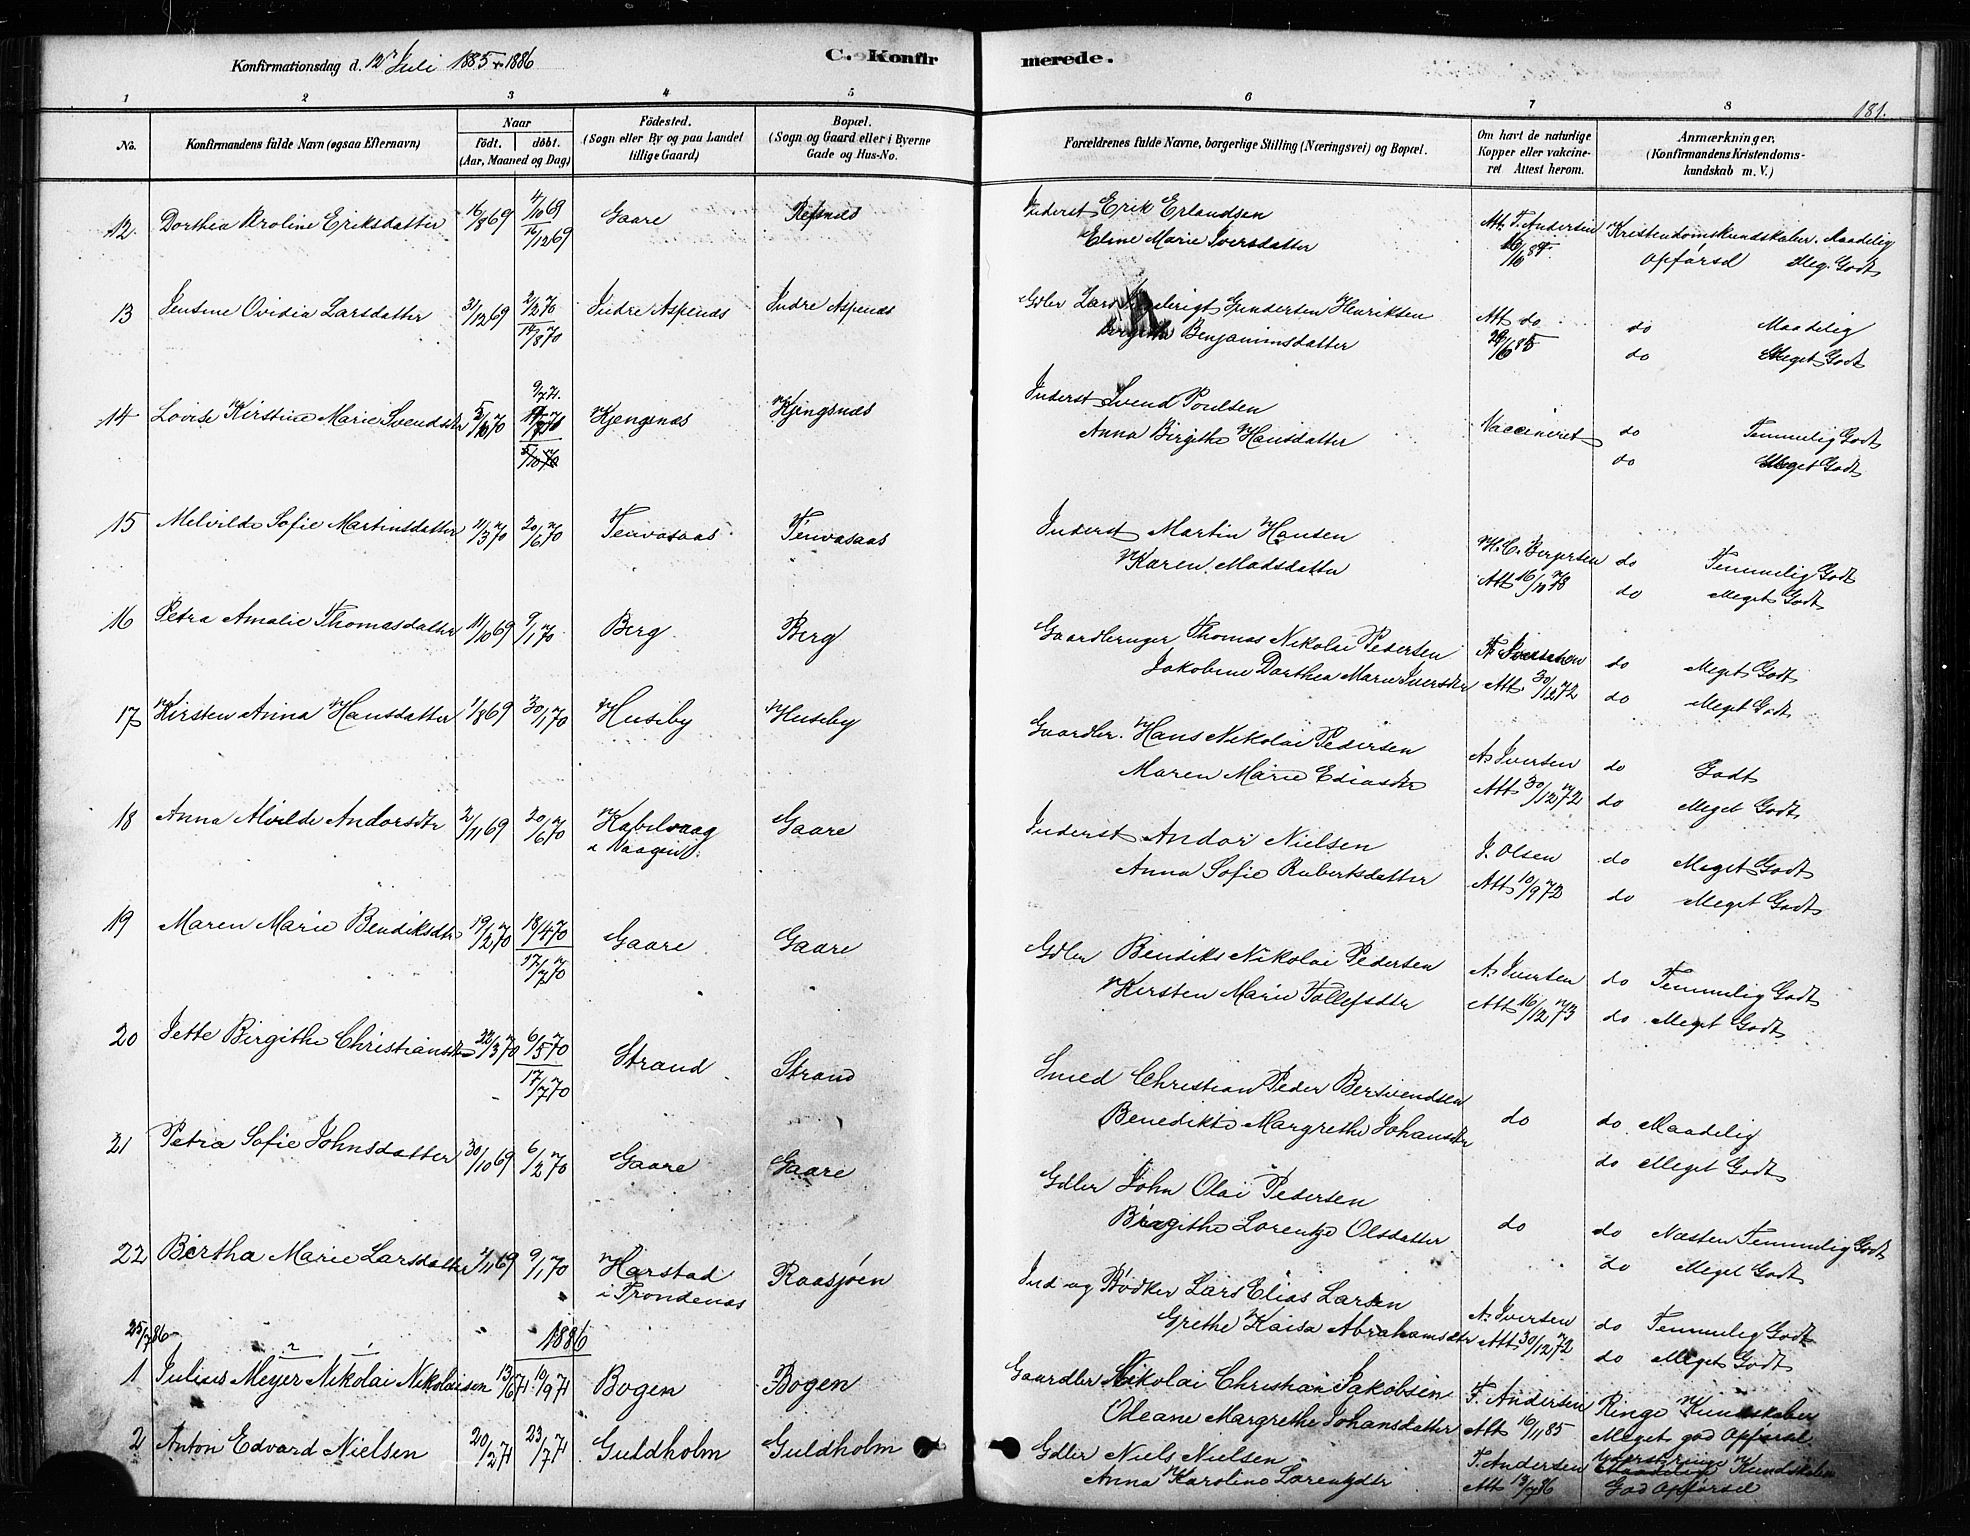 Konfirmationsdag d. 12 Juli 1885 & 1886
C. Konfir
merede.
181.
1 2 3 4 5 6 7 8
No. Konfirmandens fulde Navn (ogsaa Efternavn) Naar født. døbt. (Aar, Maaned og Dag) Fødested. (Sogn eller By og paa Landet tillige Gaard) Bopæl. (Sogn og Gaard eller i Byerne Gade og Hus-No. Forældrenes fulde Navne, borgerlige Stilling (Næringsvei) og Bopæl. Om havt de naturlige Kopper eller vakcineret Attest herom. Anmærkninger. (Konfirmandens Kristendomskundskab m. V.)
12. Dorthea Eriksdatter 16/8 69 16/12 69 Gaare Refsnæs Inderst Erik Erlandsen Att. F. Andersen Kristendomskundskaber. Maadelig
Eline Marie Iversdatter Opførsel Meg. Godt
13 Jensine Ovidia Larsdatter 31/12 69 2/2 70 14/8 70 Indre Aspenæs Indre Aspenæs Gdbr Lars Gundersen Henriksen Att do do Maadelig
Birgitta Benjaminsdatter 29/6 85 do Meget Godt
14 Lovise Kirstine Marie Svendsdtr 5/10 70 9/7 71. Kjengsnæs Kjengsnæs Inderst Svend Poulsen Vaccineret do Temmelig Godt
Anna Birgithe Hansdatter do Meget Godt
15 Melvilde Sofie Martinsdatter 11/3 70 20/6 70 Tenvasaas Tenvasaas Inderst Martin Hansen H. C. Bergersen do Temmelig Godt
Karen Madsdatter Att 16/10 78 do Meget Godt
16 Petra Amalie Thomasdatter 11/10 69 9/1 70 Berg Berg Gaardbruger Thomas Nikolai Pedersen A. Iversen do Meget Godt
Jakobine Dorthea Marie Iversdtr Att 30/12 72 do Meget Godt
17 Kirsten Anna Hansdatter 1/8 69 30/1 70 Huseby Huseby Gaardbr. Hans Nikolai Pedersen A. Iversen do Godt
Maren Marie Ediasdtr Att 30/12 72 do Meget Godt
18 Anna Alvilde Andorsdtr 2/11 69 20/6 70 Kabelvaag Gaare Inderst Andor Nielsen J. Olsen do Meget Godt
i Vaagen. Anna Sofie Rubertsdatter Att 10/9 72 do Meget Godt
19 Maren Marie Bendiksdtr 19/2 70 18/4 70 17/7 70 Gaare Gaare Gdbr Bendiks Nikolai Pedersen A. Iversen do Temmelig Godt
Kirsten Marie Tollefsdtr Att 16/12 73 do Meget Godt
20 Jette Birgithe Christiansdtr 22/3 70 6/5 70 17/7 70 Strand Strand Smed Christian Peder Bersvendsen do do Maadelig
Benedikte Margrethe Johansdtr do Meget Godt
21 Petra Sofie Johnsdatter 30/10 69 6/2 70 Gaare Gaare Gdbr John Olai Pedersen do do Næsten Temmelig Godt
Birgithe Lorentze Olsdatter do Meget Godt
22 Bertha Marie Larsdatter 4/11 69 9/1 70 Harstad Raasjøen Ind og Bødker Lars Elias Larsen A. Iversen do Temmelig Godt
i Trondenæs Grethe Kaisa Abrahamsdtr Att 30/12 72 do Meget Godt
25/7 86 1886
1 Julius Meyer Nikolai Nikolaisen 13/6 71 10/9 71 Bogen Bogen Gaardbr Nikolai Christian Jakobsen F. Andersen Ringe Kundskaber
Odeane Margrethe Johansdatter Att 16/11 85 Meget god Opførsel.
2 Anton Edvard Nielsen 20/2 71 23/7 71 Guldholm Guldholm Gdbr Niels Nielsen F. Andersen Yderst ringe Kundskaber
Anna Karoline Lorentzdtr Att 13/7 86 God Opførsel